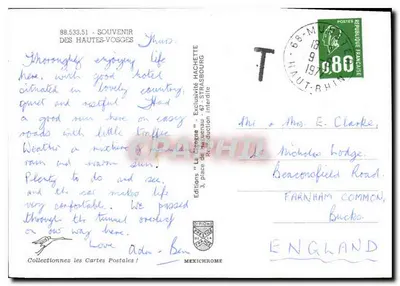 88.533.51 - SOUVENIR
DES HAUTES-VOSGES
Thurs.
Thoroughly enjoying life
here, with good hotel
situated in lovely country,
quiet and restful. Had
a good run here on easy
roads with little traffic.
Weather a mixture
rain and warm sun.
Plenty to do and see,
and the car makes life
very comfortable. We passed
through the tunnel
on our way here.
Love
Collectionnez les Cartes Postales !
MEXICHROME
Editions "La Cigogne" - Exclusivité HACHETTE
67 STRASBOURG
reproduction interdite
T
68 - M
HAUT-RHIN
POSTES
0,80
REPUBLIQUE FRANÇAISE
Mr & Mrs. E. Clarke,
Nicholas Lodge,
Beaconsfield Road,
FARNHAM COMMON,
Bucks
ENGLAND